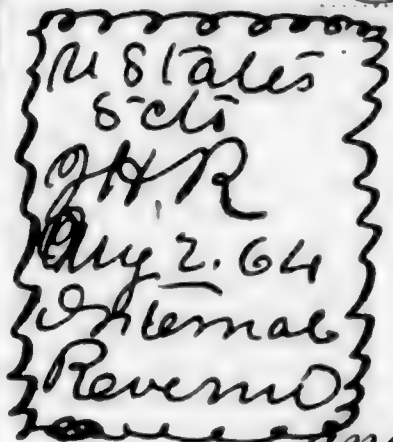 U States
5 cts
J H R
Aug 2. 64
Internal
Revenue